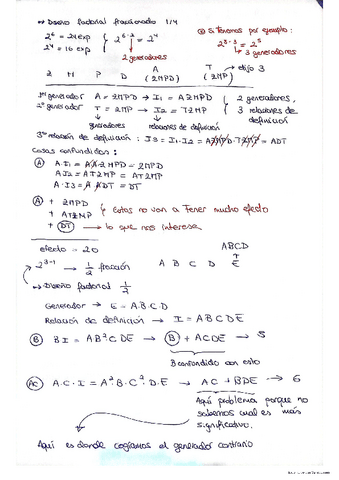 → Diseño factorial fraccionado 1/4
2^6 = 64 exp
2^4 = 16 exp
2^(6-2) = 2^4
2 generadores
⊛ Si Tenemos por ejemplo:
2^(8-3) = 2^5
3 generadores
Z M P D A T → elijo 3
(ZMPD) (ZMP)
1er generador A = ZMPD → I1 = AZMPD
2º generador T = ZMP → I2 = TZMP
2 generadores,
3 relaciones de definición
generadores relaciones de definición
3ª relación de definición: I3 = I1·I2 = AZMPD·TZMP = ADT
Cosas confundidas:
(A) A·I1 = A·A·ZMPD = ZMPD
A·I2 = ATZMP = ATZMP
A·I3 = A·ADT = DT
(A) + ZMPD
+ ATZMP
Estas no van a Tener mucho efecto
+ (DT) → lo que nos interesa
efecto = 20
ABCD
2^(5-1) → 1/2 fracción A B C D E
→ Diseño factorial 1/2
Generador → E = A·B·C·D
Relación de definición → I = ABCDE
(B) BI = AB²CDE → (B) + ACDE → 5
B confundido con esto
(AC) A·C·I = A²·B·C²·D·E → AC + BDE → 6
Aquí problema porque no
sabemos cual es más
significativo.
Aquí es donde cogíamos el generador contrario